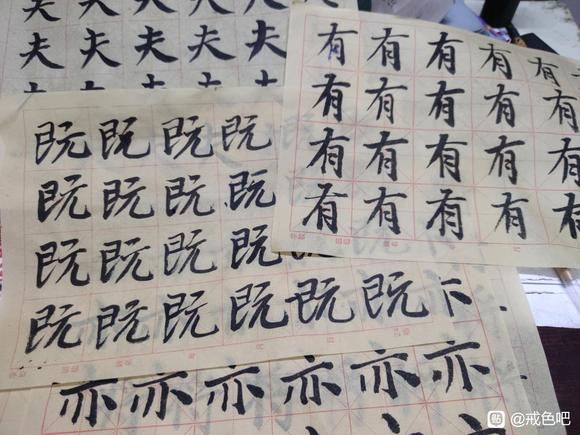 夫夫夫夫夫
夫夫夫夫夫
夫夫夫夫夫
有有有有有
有有有有有
有有有有有
有有有有有
既既既既
既既既既
既既既既
既既既既既既
亦亦亦亦亦亦
贴 @戒色吧